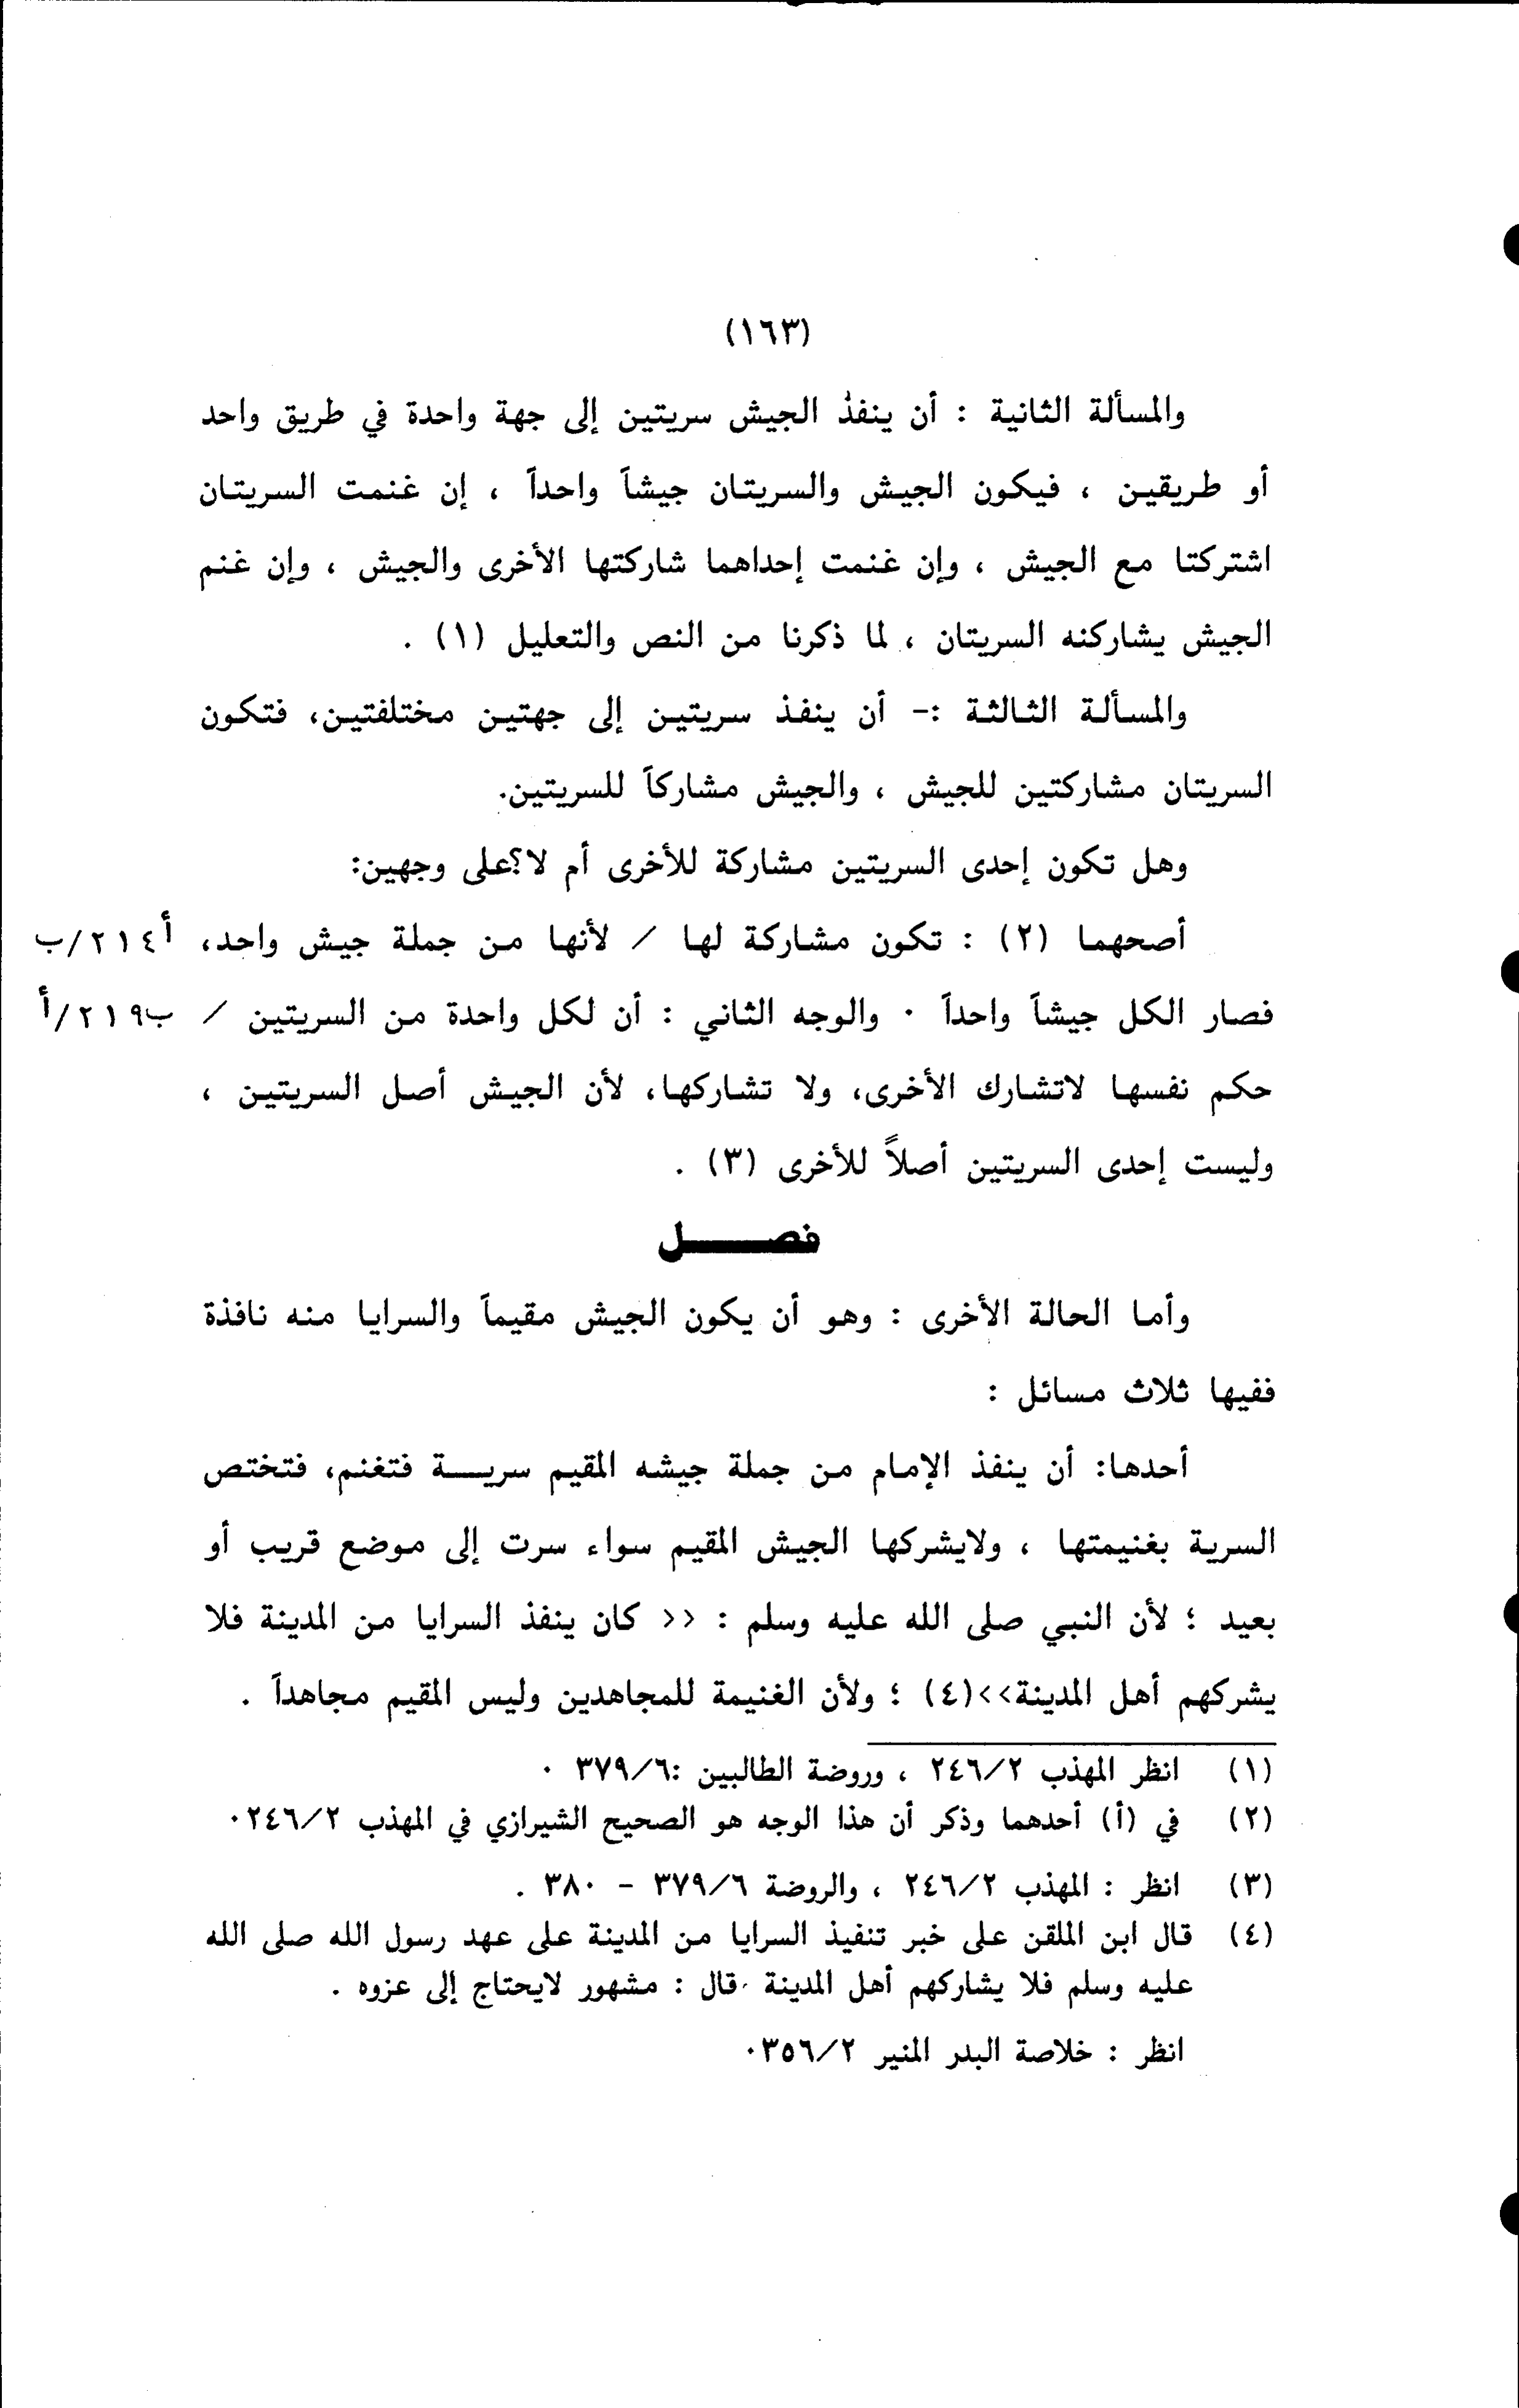 (١٦٣)
والمسألة الثانية : أن ينفذ الجيش سريتين إلى جهة واحدة في طريق واحد
أو طريقين ، فيكون الجيش والسريتان جيشاً واحداً ، إن غنمت السريتان
اشتركتا مع الجيش ، وإن غنمت إحداهما شاركتها الأخرى والجيش ، وإن غنم
الجيش يشاركنه السريتان ، لما ذكرنا من النص والتعليل (١) .
والمسألة الثالثة :- أن ينفذ سريتين إلى جهتين مختلفتين، فتكون
السريتان مشاركتين للجيش ، والجيش مشاركاً للسريتين.
وهل تكون إحدى السريتين مشاركة للأخرى أم لا؟على وجهين:
أصحهما (٢) : تكون مشاركة لها / لأنها من جملة جيش واحد، أ٢١٤/ب
فصار الكل جيشاً واحداً ٠ والوجه الثاني : أن لكل واحدة من السريتين / ب٢١٩/أ
حكم نفسها لاتشارك الأخرى، ولا تشاركها، لأن الجيش أصل السريتين ،
وليست إحدى السريتين أصلاً للأخرى (٣) .
فصــــــل
وأما الحالة الأخرى : وهو أن يكون الجيش مقيماً والسرايا منه نافذة
ففيها ثلاث مسائل :
أحدها: أن ينفذ الإمام من جملة جيشه المقيم سريـــة فتغنم، فتختص
السرية بغنيمتها ، ولايشركها الجيش المقيم سواء سرت إلى موضع قريب أو
بعيد ؛ لأن النبي صلى الله عليه وسلم : << كان ينفذ السرايا من المدينة فلا
يشركهم أهل المدينة>>(٤) ؛ ولأن الغنيمة للمجاهدين وليس المقيم مجاهداً .
(١) انظر المهذب ٢٤٦/٢ ، وروضة الطالبين :٣٧٩/٦ ٠
(٢) في (أ) أحدهما وذكر أن هذا الوجه هو الصحيح الشيرازي في المهذب ٢٤٦/٢٠
(٣) انظر : المهذب ٢٤٦/٢ ، والروضة ٣٧٩/٦ - ٣٨٠ .
(٤) قال ابن الملقن على خبر تنفيذ السرايا من المدينة على عهد رسول الله صلى الله
عليه وسلم فلا يشاركهم أهل المدينة ،قال : مشهور لايحتاج إلى عزوه .
انظر : خلاصة البدر المنير ٣٥٦/٢٠